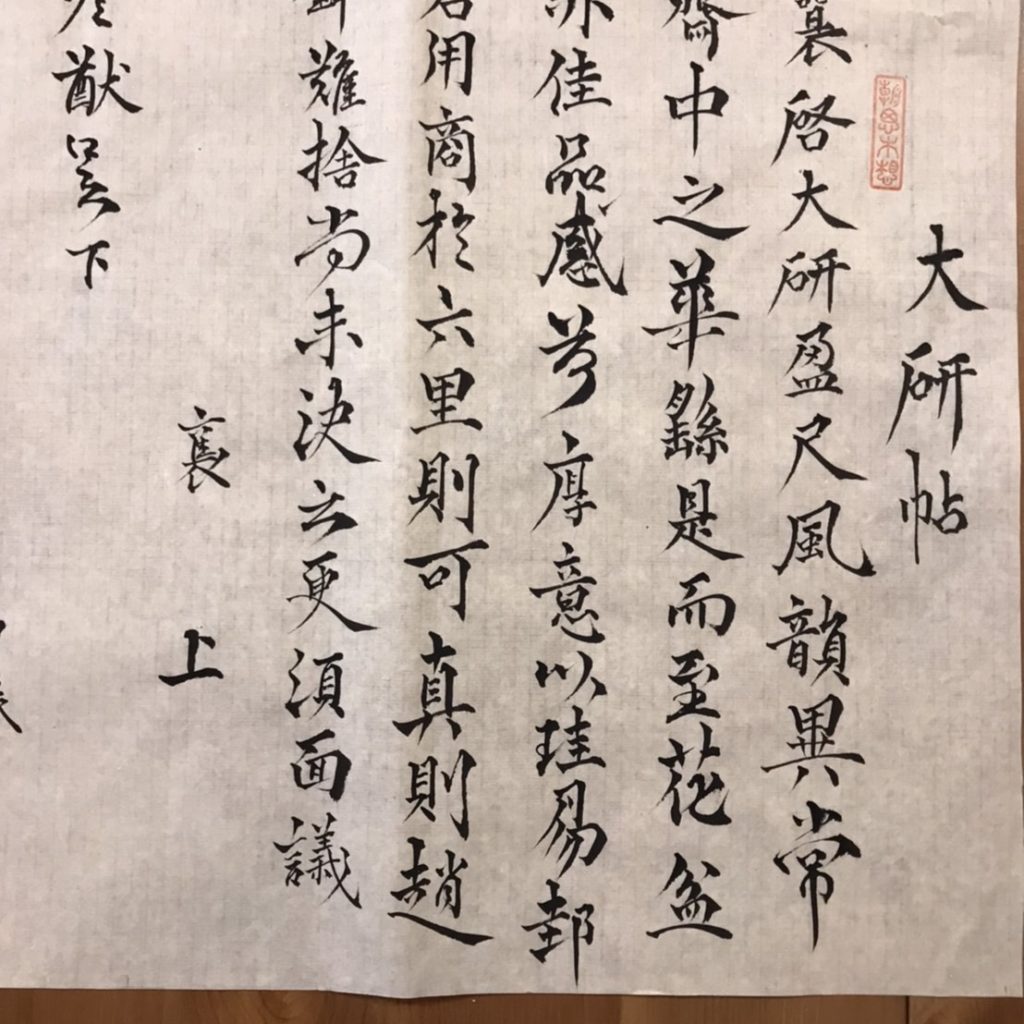 大研帖
襄啓大研盈尺風韻異常
齋中之華繇是而至花盆
亦佳品感荷厚意以珪易邽
若用商於六里則可真則趙
難捨尚未決云更須面議
襄上
猷足下